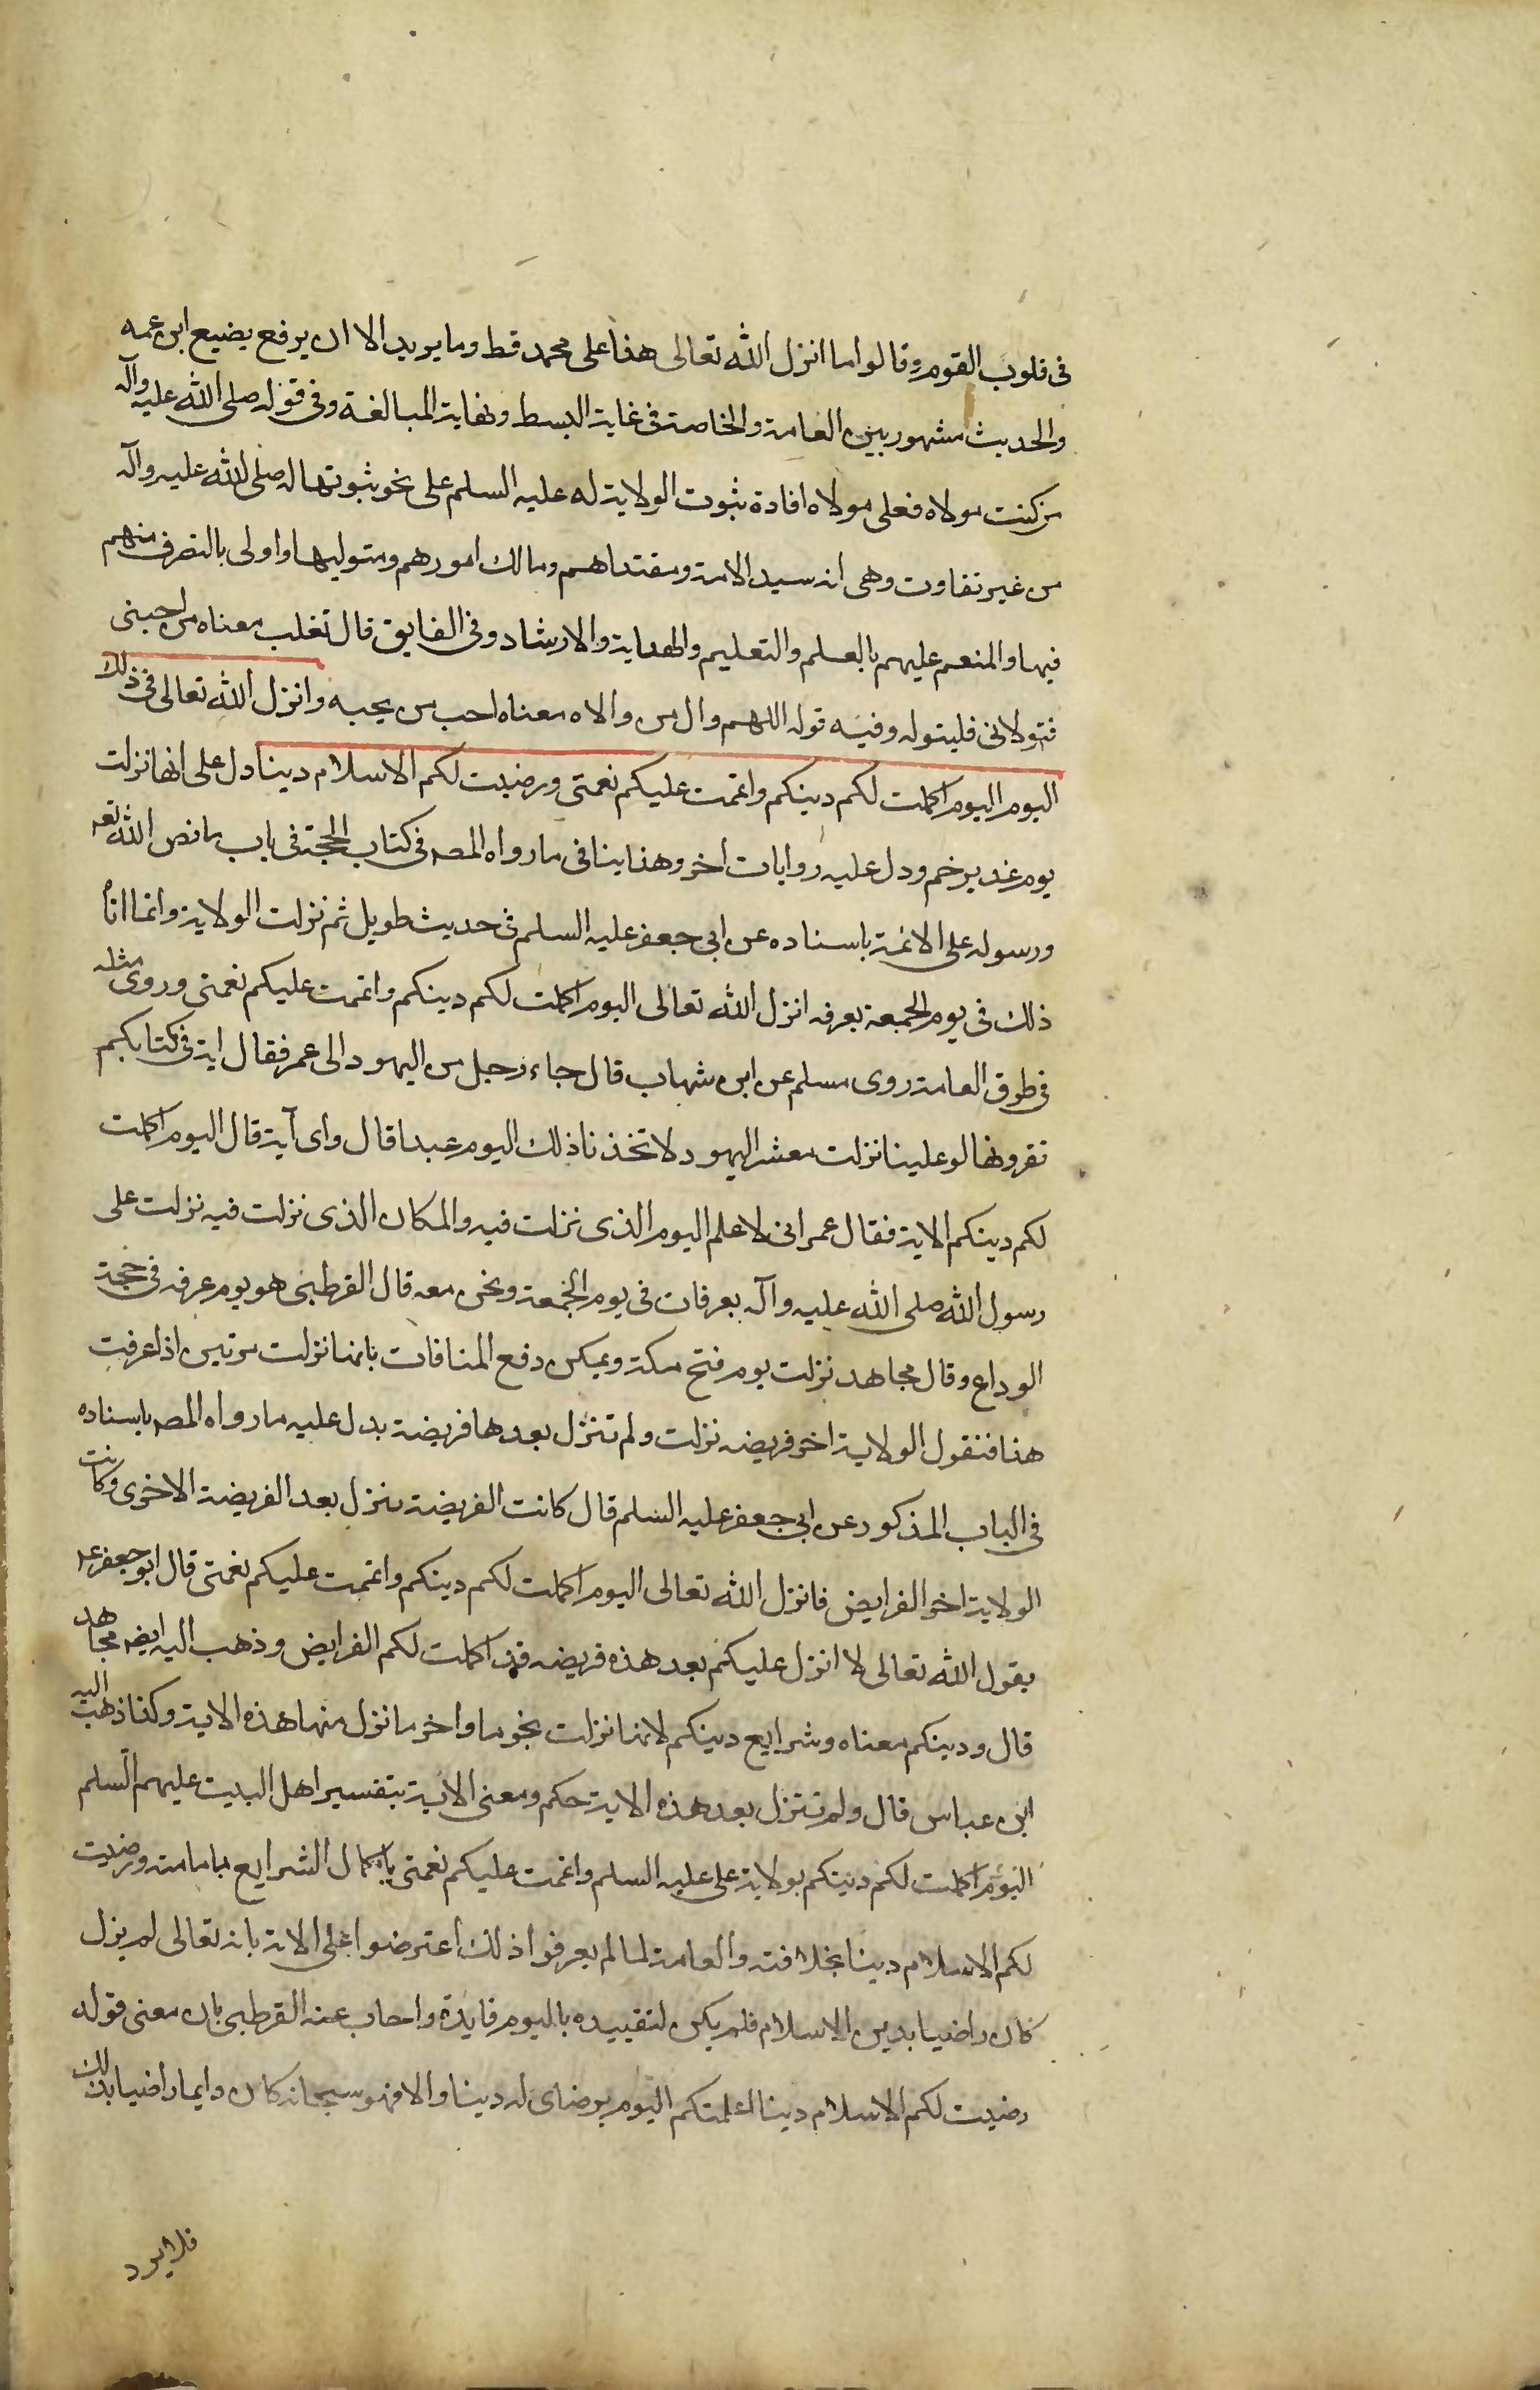 فى قلوب القوم وقالوا ما انزل الله تعالى هذا على محمد قط وما يريد الا ان يرفع بضبع ابن عمه
والحديث مشهور بين العامة والخاصة فى غاية البسط ونهاية المبالغة وفى قوله صلى الله عليه وآله
من كنت مولاه فعلى مولاه افادة ثبوت الولاية له عليه السلم على نحو ثبوتها له صلى الله عليه وآله
من غير تفاوت وهى انه سيد الامة ومقتداهم ومالك امورهم ومتوليها واولى بالتصرف منهم
فيها والمنعم عليهم بالعلم والتعليم والهداية والارشاد وفى الفايق قال تغلب معناه من احبنى
فتولانى فليتوله وفيه قوله اللهم وال من والاه معناه احب من يحبه وانزل الله تعالى فى ذلك
اليوم اليوم اكملت لكم دينكم واتممت عليكم نعمتى ورضيت لكم الاسلام دينا دل على انها نزلت
يوم غدير خم ودل عليه روايات اخر وهذا ينافى ما رواه المصـ فى كتاب الحجة فى باب ما نص الله تعـ
ورسوله على الائمة باسناده عن ابى جعفر عليه السلم فى حديث طويل ثم نزلت الولاية وانما اتاه
ذلك فى يوم الجمعة بعرفه انزل الله تعالى اليوم اكملت لكم دينكم واتممت عليكم نعمتى وروى مثله
فى طرق العامة روى مسلم عن ابن شهاب قال جاء رجل من اليهود الى عمر فقال اية فى كتابكم
تقرونها لو علينا نزلت معشر اليهود لاتخذنا ذلك اليوم عيدا قال واى آية قال اليوم اكملت
لكم دينكم الاية فقال عمر انى لاعلم اليوم الذى نزلت فيه والمكان الذى نزلت فيه نزلت على
رسول الله صلى الله عليه وآله بعرفات فى يوم الجمعة ونحن معه قال القرطبى هو يوم عرفه فى حجة
الوداع وقال مجاهد نزلت يوم فتح مكة ويمكن دفع المنافات بانها نزلت مرتين اذا عرفت
هذا فنقول الولاية اخر فريضه نزلت ولم تنزل بعدها فريضة يدل عليه ما رواه المصـ باسناده
فى الباب المذكور عن ابى جعفر عليه السلم قال كانت الفريضة تنزل بعد الفريضة الاخرى وكانت
الولاية اخر الفرايض فانزل الله تعالى اليوم اكملت لكم دينكم واتممت عليكم نعمتى قال ابو جعفر عـ
يقول الله تعالى لا انزل عليكم بعد هذه فريضه قد اكملت لكم الفرايض وذهب اليه ايضـ مجاهد
قال ودينكم معناه وشرايع دينكم لانها نزلت نجوما واخر ما نزل منها هذه الاية وكذا ذهب اليه
ابن عباس قال ولم تنزل بعد هذه الاية حكم ومعنى الاية بتفسير اهل البيت عليهم السلم
اليوم اكملت لكم دينكم بولاية على عليه السلم واتممت عليكم نعمتى باكمال الشرايع بامامته ورضيت
لكم الاسلام دينا بخلافته والعامة لما لم يعرفوا ذلك اعترضوا على الاية بانه تعالى لم يزل
كان راضيا بدين الاسلام فلم يكن لتقييده باليوم فايدة واجاب عنه القرطبى بان معنى قوله
رضيت لكم الاسلام دينا اعلمتكم اليوم برضاى له دينا والا فهو سبحانه كان دايما راضيا بذلك
فلا يرد